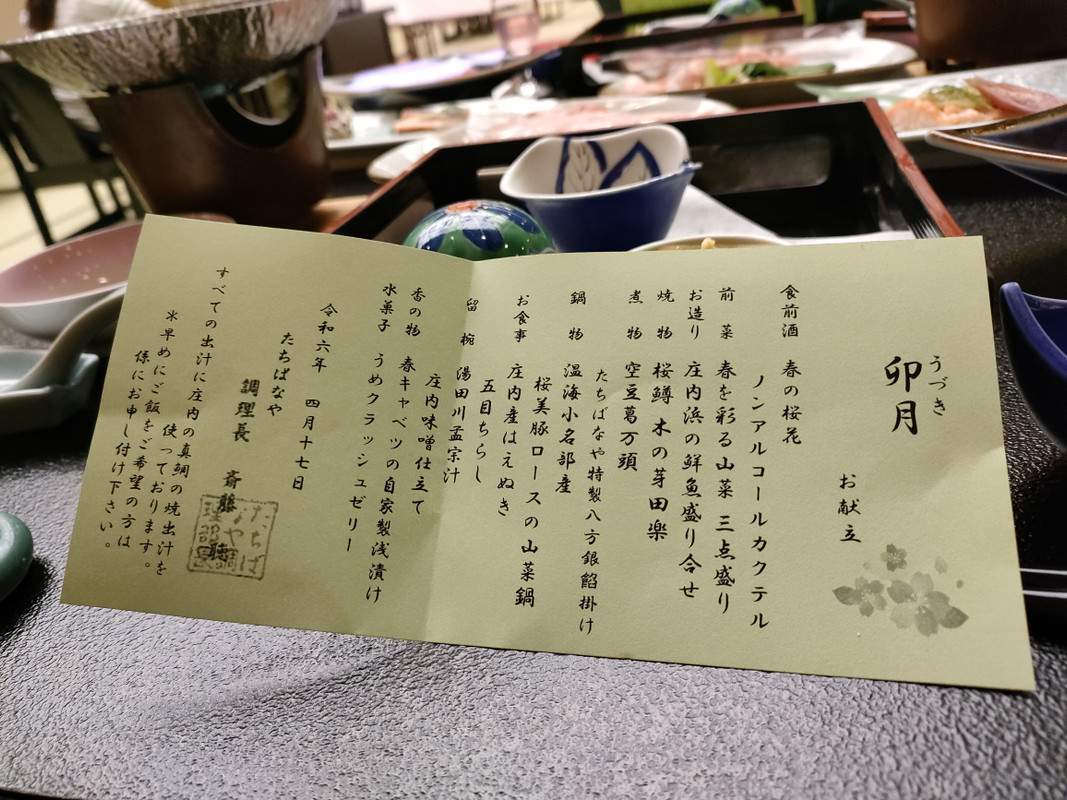 うづき
卯月
お献立
食前酒 春の桜花
ノンアルコールカクテル
前菜 春を彩る山菜 三点盛り
お造り 庄内浜の鮮魚盛り合せ
焼物 桜鱒 木の芽田楽
煮物 空豆葛万頭
たちばなや特製八方銀餡掛け
鍋物 温海小名部産
桜美豚ロースの山菜鍋
お食事 庄内産はえぬき
五目ちらし
留椀 湯田川孟宗汁
庄内味噌仕立て
香の物 春キャベツの自家製浅漬け
水菓子 うめクラッシュゼリー
令和六年 四月十七日
たちばなや
調理長 斎藤
たちば
なや調
すべての出汁に庄内の真鯛の焼出汁を
使っております。
※早めにご飯をご希望の方は
係にお申し付け下さい。